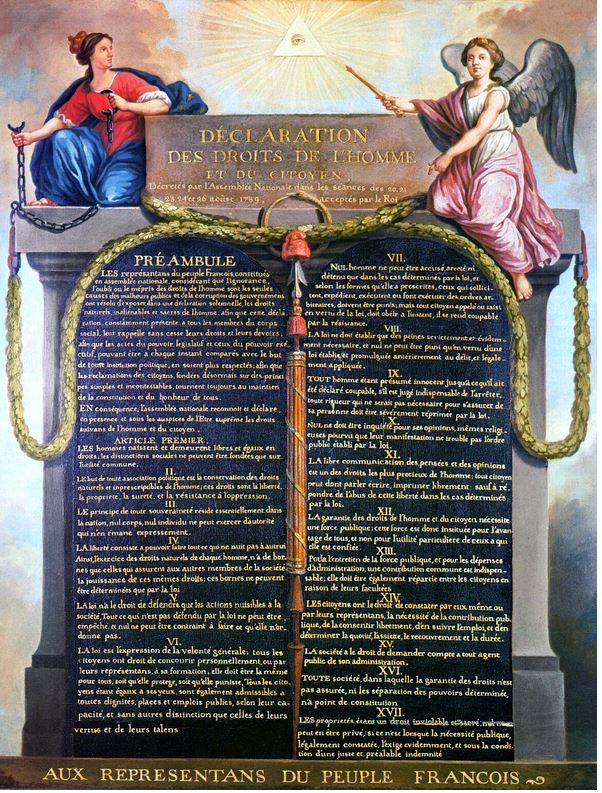 DÉCLARATION
DES DROITS DE L'HOMME
ET DU CITOYEN,
Décretés par l'Assemblée Nationale dans les séances des 20, 21
23, 24 et 26 août 1789, acceptés par le Roi
PRÉAMBULE
LES représentans du peuple François, constitués
en assemblée nationale, considérant que l'ignorance,
l'oubli ou le mépris des droits de l'homme sont les seules
causes des malheurs publics et de la corruption des gouvernemens
ont résolu d'exposer dans une déclaration solemnelle, les droits
naturels, inaliénables et sacrés de l'homme; afin que cette décla
ration, constamment présente a tous les membres du corps
social, leur rappelle sans cesse leurs droits et leurs devoirs;
afin que les actes du pouvoir legislatif et ceux du pouvoir exé
cutif, pouvant être a chaque instant comparés avec le but
de toute institution politique, en soient plus respectés; afin que
les reclamations des citoyens, fondées désormais sur des princi
pes simples et incontestables, tournent toujours au maintien
de la constitution et du bonheur de tous.
EN conséquence, l'assemblée nationale reconnoit et déclare,
en presence et sous les auspices de l'Etre suprême les droits
suivans de l'homme et du citoyen.
ARTICLE PREMIER.
LES hommes naissent et demeurent libres et égaux en
droits; les distinctions sociales ne peuvent être fondées que sur
l'utilité commune.
II.
LE but de toute association politique est la conservation des droits
naturels et imprescriptibles de l'homme; ces droits sont la liberté,
la propriété, la sureté, et la résistance à l'oppression.
III.
LE principe de toute souveraineté réside essentiellement dans
la nation, nul corps, nul individu ne peut exercer d'autorité
qui n'en émane expressement.
IV.
LA liberté consiste a pouvoir faire tout ce qui ne nuit pas à autrui
Ainsi, l'exercice des droits naturels de chaque homme, n'a de bor-
nes que celles qui assurent aux autres membres de la société
la jouissance de ces mêmes droits; ces bornes ne peuvent
être déterminées que par la loi
V.
LA loi n'a le droit de défendre que les actions nuisibles à la
société. Tout ce qui n'est pas défendu par la loi ne peut être
empêché, et nul ne peut être contraint à faire ce qu'elle n'or-
donne pas.
VI.
LA loi est l'expression de la volonté générale; tous les
citoyens ont droit de concourir personnellement, ou par
leurs représentans, à sa formation; elle doit être la même
pour tous, soit qu'elle protege, soit qu'elle punisse. Tous les cito
yens étant égaux à ses yeux, sont également admissibles à
toutes dignités, places et emplois publics, selon leur ca-
pacité, et sans autres distinction que celles de leurs
vertus et de leurs talens
VII.
NUL homme ne peut être accusé, arreté, ni
détenu que dans les cas déterminés par la loi, et
selon les formes qu'elle a prescrites, ceux qui sollici-
tent, expédient, exécutent ou font exécuter des ordres ar-
bitraires, doivent être punis; mais tout citoyen appelé ou saisi
en vertu de la loi, doit obéir a l'instant, il se rend coupable
par la résistance.
VIII.
LA loi ne doit établir que des peines strictement et évidem-
ment nécessaire, et nul ne peut être puni qu'en vertu d'une
loi établie, et promulguée antérieurement au délit, et légale-
ment appliquée.
IX.
TOUT homme étant présumé innocent jusqu'à ce qu'il ait
été déclaré coupable, s'il est jugé indispensable de l'arrêter,
toute rigueur qui ne serait pas nécessaire pour s'assurer de
sa personne doit être sévèrement réprimée par la loi.
X.
NUL ne doit être inquiété pour ses opinions, mêmes religi
euses pourvu que leur manifestation ne trouble pas l'ordre
public établi par la loi.
XI.
LA libre communication des pensées et des opinions
est un des droits les plus precieux de l'homme; tout citoyen
peut donc parler écrire, imprimer librement: sauf à ré-
pondre de l'abus de cette liberté dans les cas déterminés
par la loi.
XII.
LA garantie des droits de l'homme et du citoyen nécessite
une force publique; cette force est donc instituée pour l'avan-
tage de tous, et non pour l'utilité particuliere de ceux a qui
elle est confiée.
XIII.
POUR l'entretien de la force publique, et pour les dépenses
d'administration, une contribution commune est indispen-
sable; elle doit être également répartie entre les citoyens en
raison de leurs facultées
XIV.
LES citoyens ont le droit de constater par eux même ou
par leurs représentans, la nécessité de la contribution pub-
lique, de la consentir librement, d'en suivre l'emploi, et d'en
déterminer la quotité, l'assiette, le recouvrement et la durée.
XV.
LA société a le droit de demander compte a tout agent
public de son administration.
XVI.
TOUTE société, dans laquelle la garantie des droits n'est
pas assurée, ni les séparation des pouvoirs déterminée,
n'a point de constitution
XVII.
LES proprietés étant un droit inviolable et sacré, nul ne
peut en être privé, si ce n'est lorsque la nécessité publique,
légalement constatée, l'exige evidemment, et sous la condi-
tion d'une juste et préalable indemnité
AUX REPRESENTANS DU PEUPLE FRANCOIS